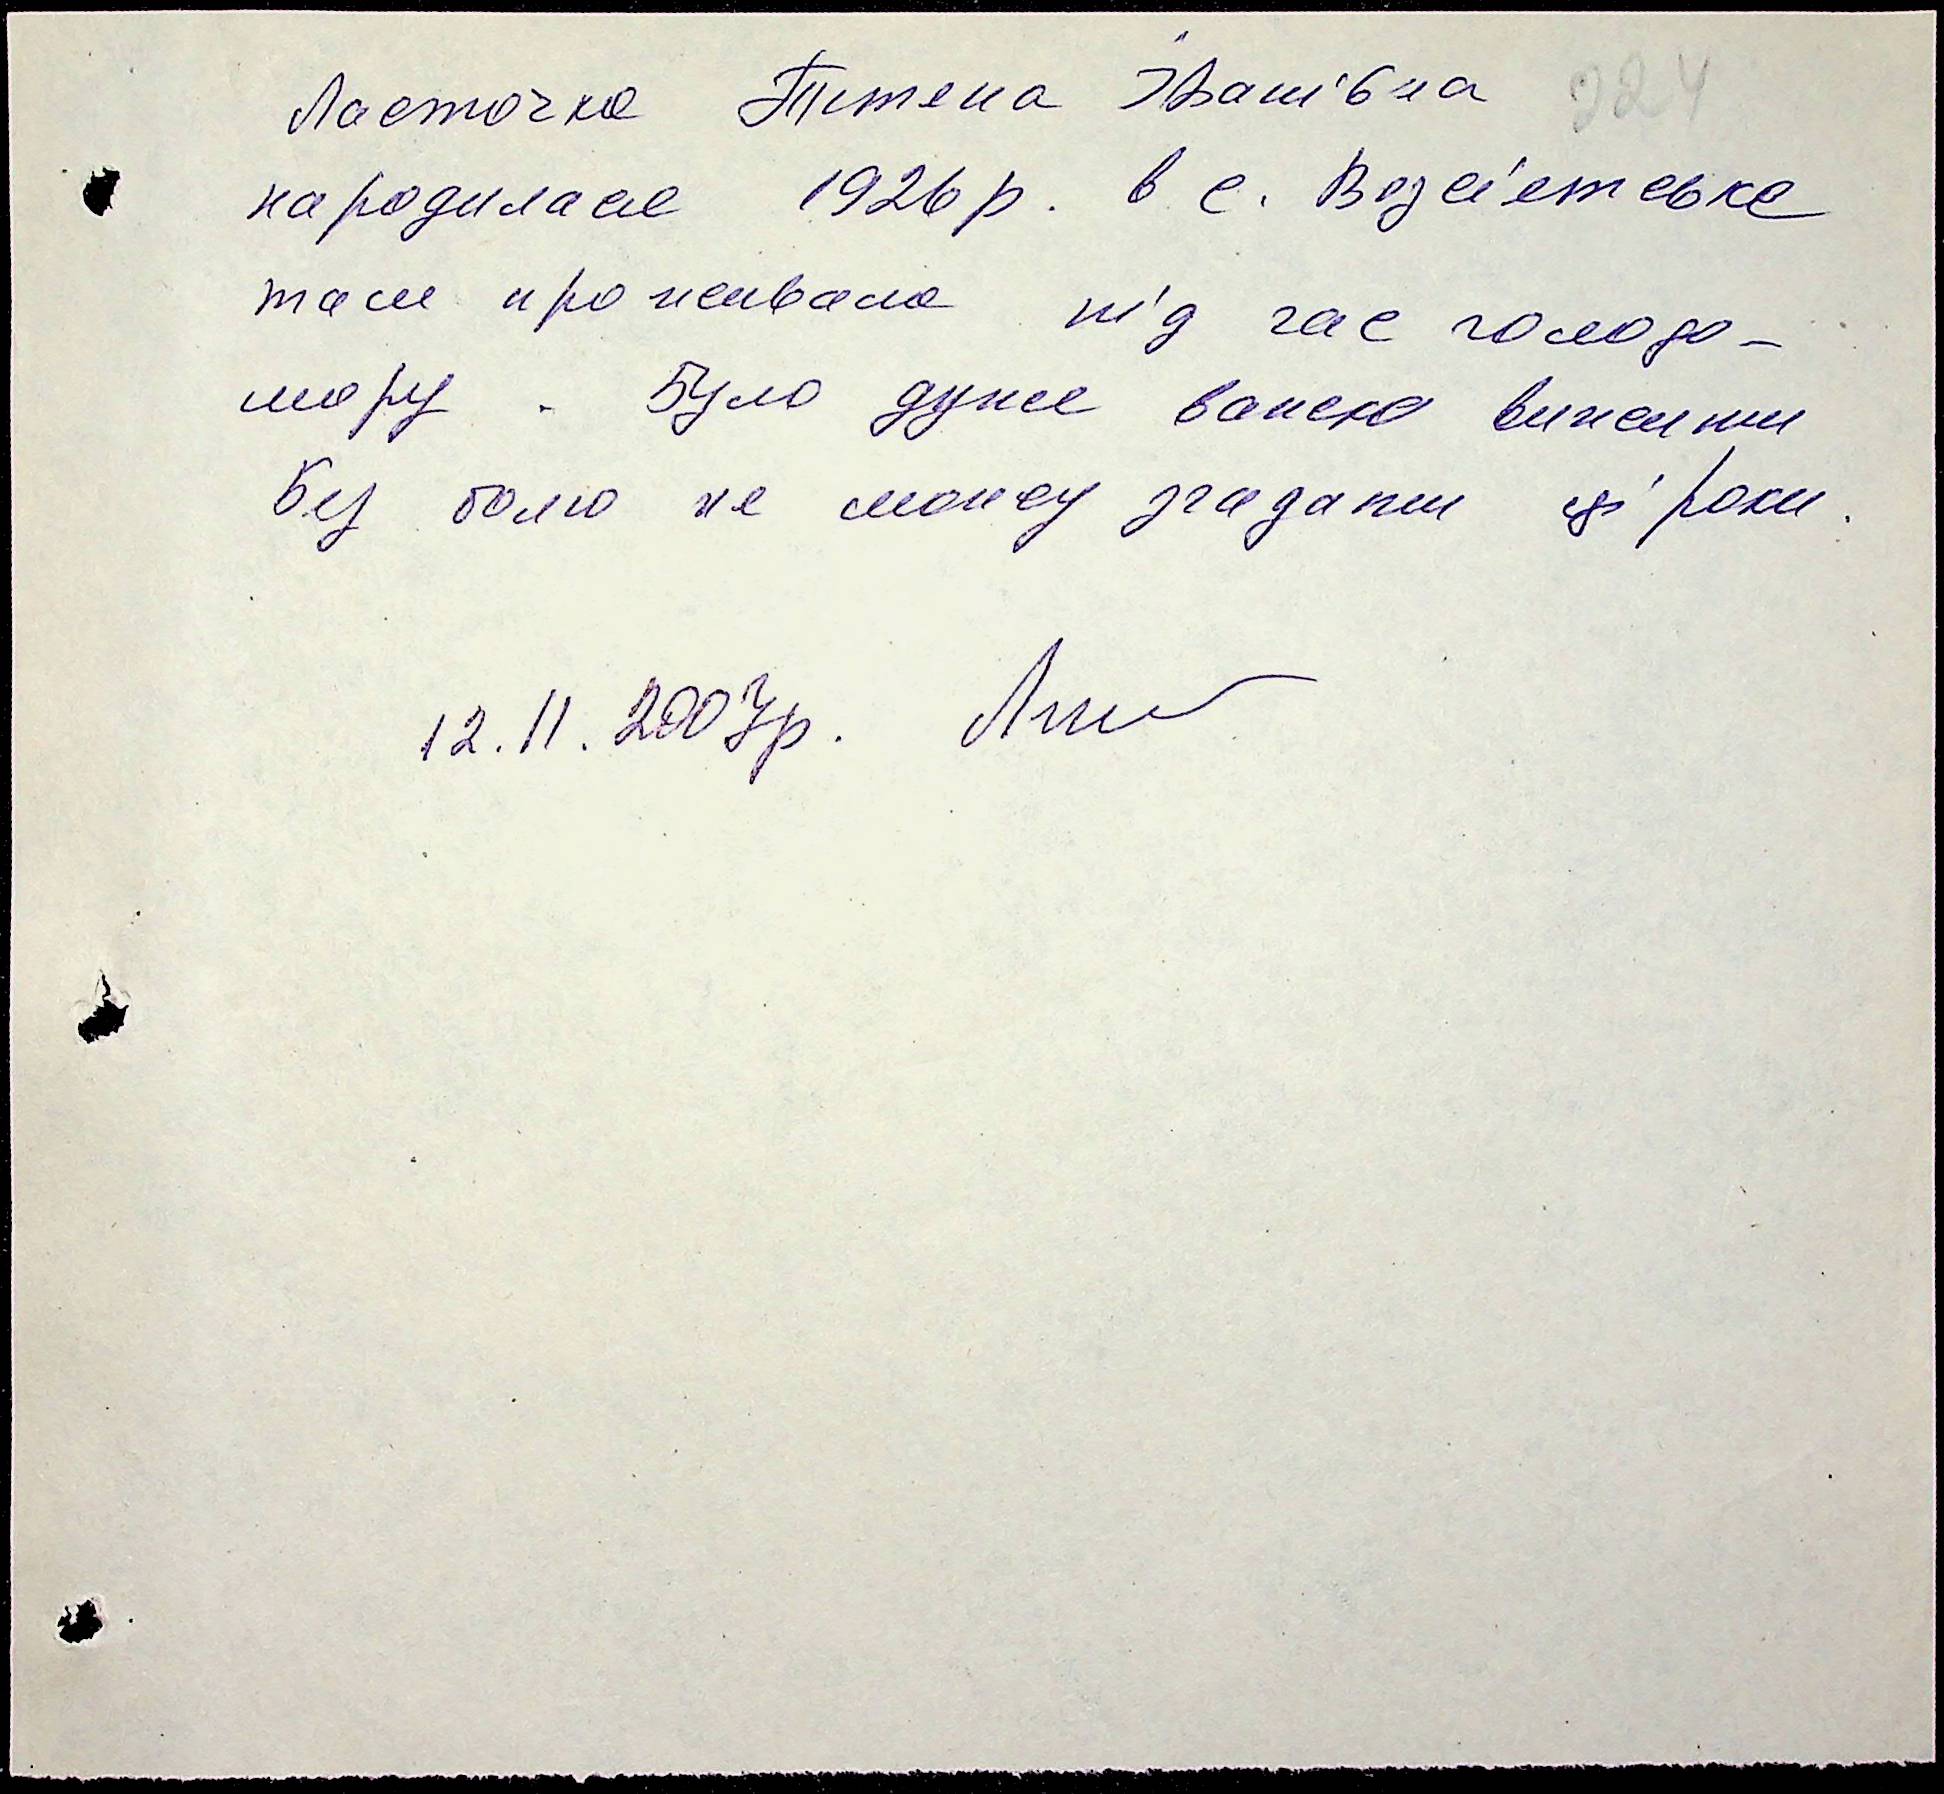 Ласточка Тетяна Іванівна 324
народилася 1926 р. в с. Возсіятське
там проживала під час голодо-
мору. Було дуже важко вижити
Без болю не можу згадати ці роки.
12.11.2007р.